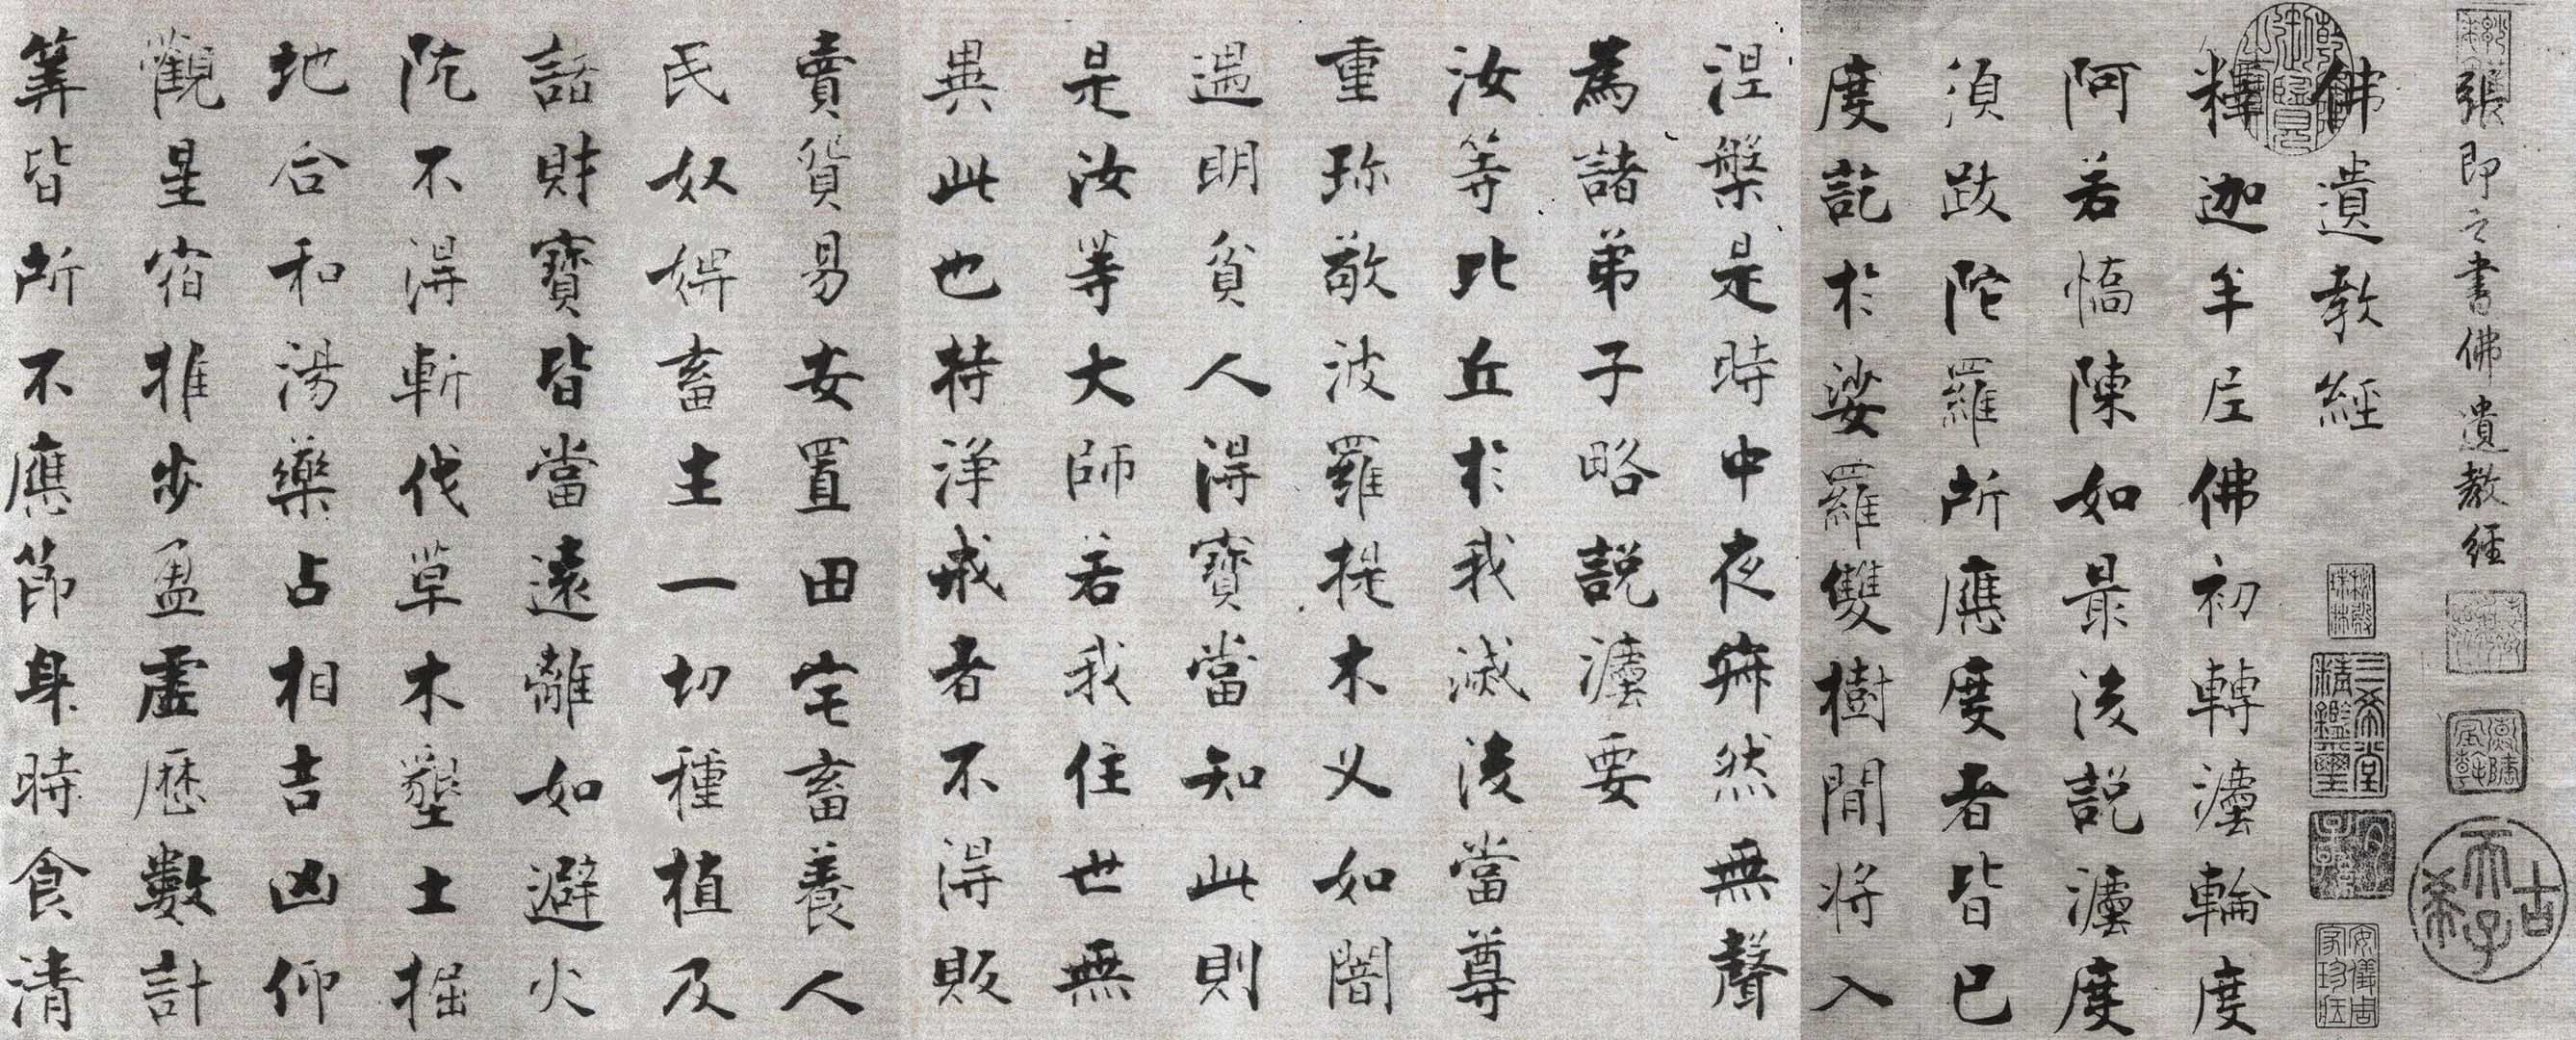 張即之書佛遺教經
佛遺教經
釋迦牟尼佛初轉灋輪度
阿若憍陳如最後説灋度
須跋陀羅所應度者皆已
度訖於娑羅雙樹間将入
涅槃是時中夜寂然無聲
為諸弟子略説灋要
汝等比丘於我滅後當尊
重珎敬波羅提木叉如闇
遇明貧人得寶當知此則
是汝等大師若我住世無
異此也持淨戒者不得販
賣貿易安置田宅畜養人
民奴婢畜生一切種植及
諸財寶皆當遠離如避火
阬不得斬伐草木墾土掘
地合和湯藥占相吉凶仰
觀星宿推步盈虛歷數計
筭皆所不應節身時食清
三希堂精鑑璽
宜子孫
古希天子
安儀周家珍藏
乾隆御覽之寶